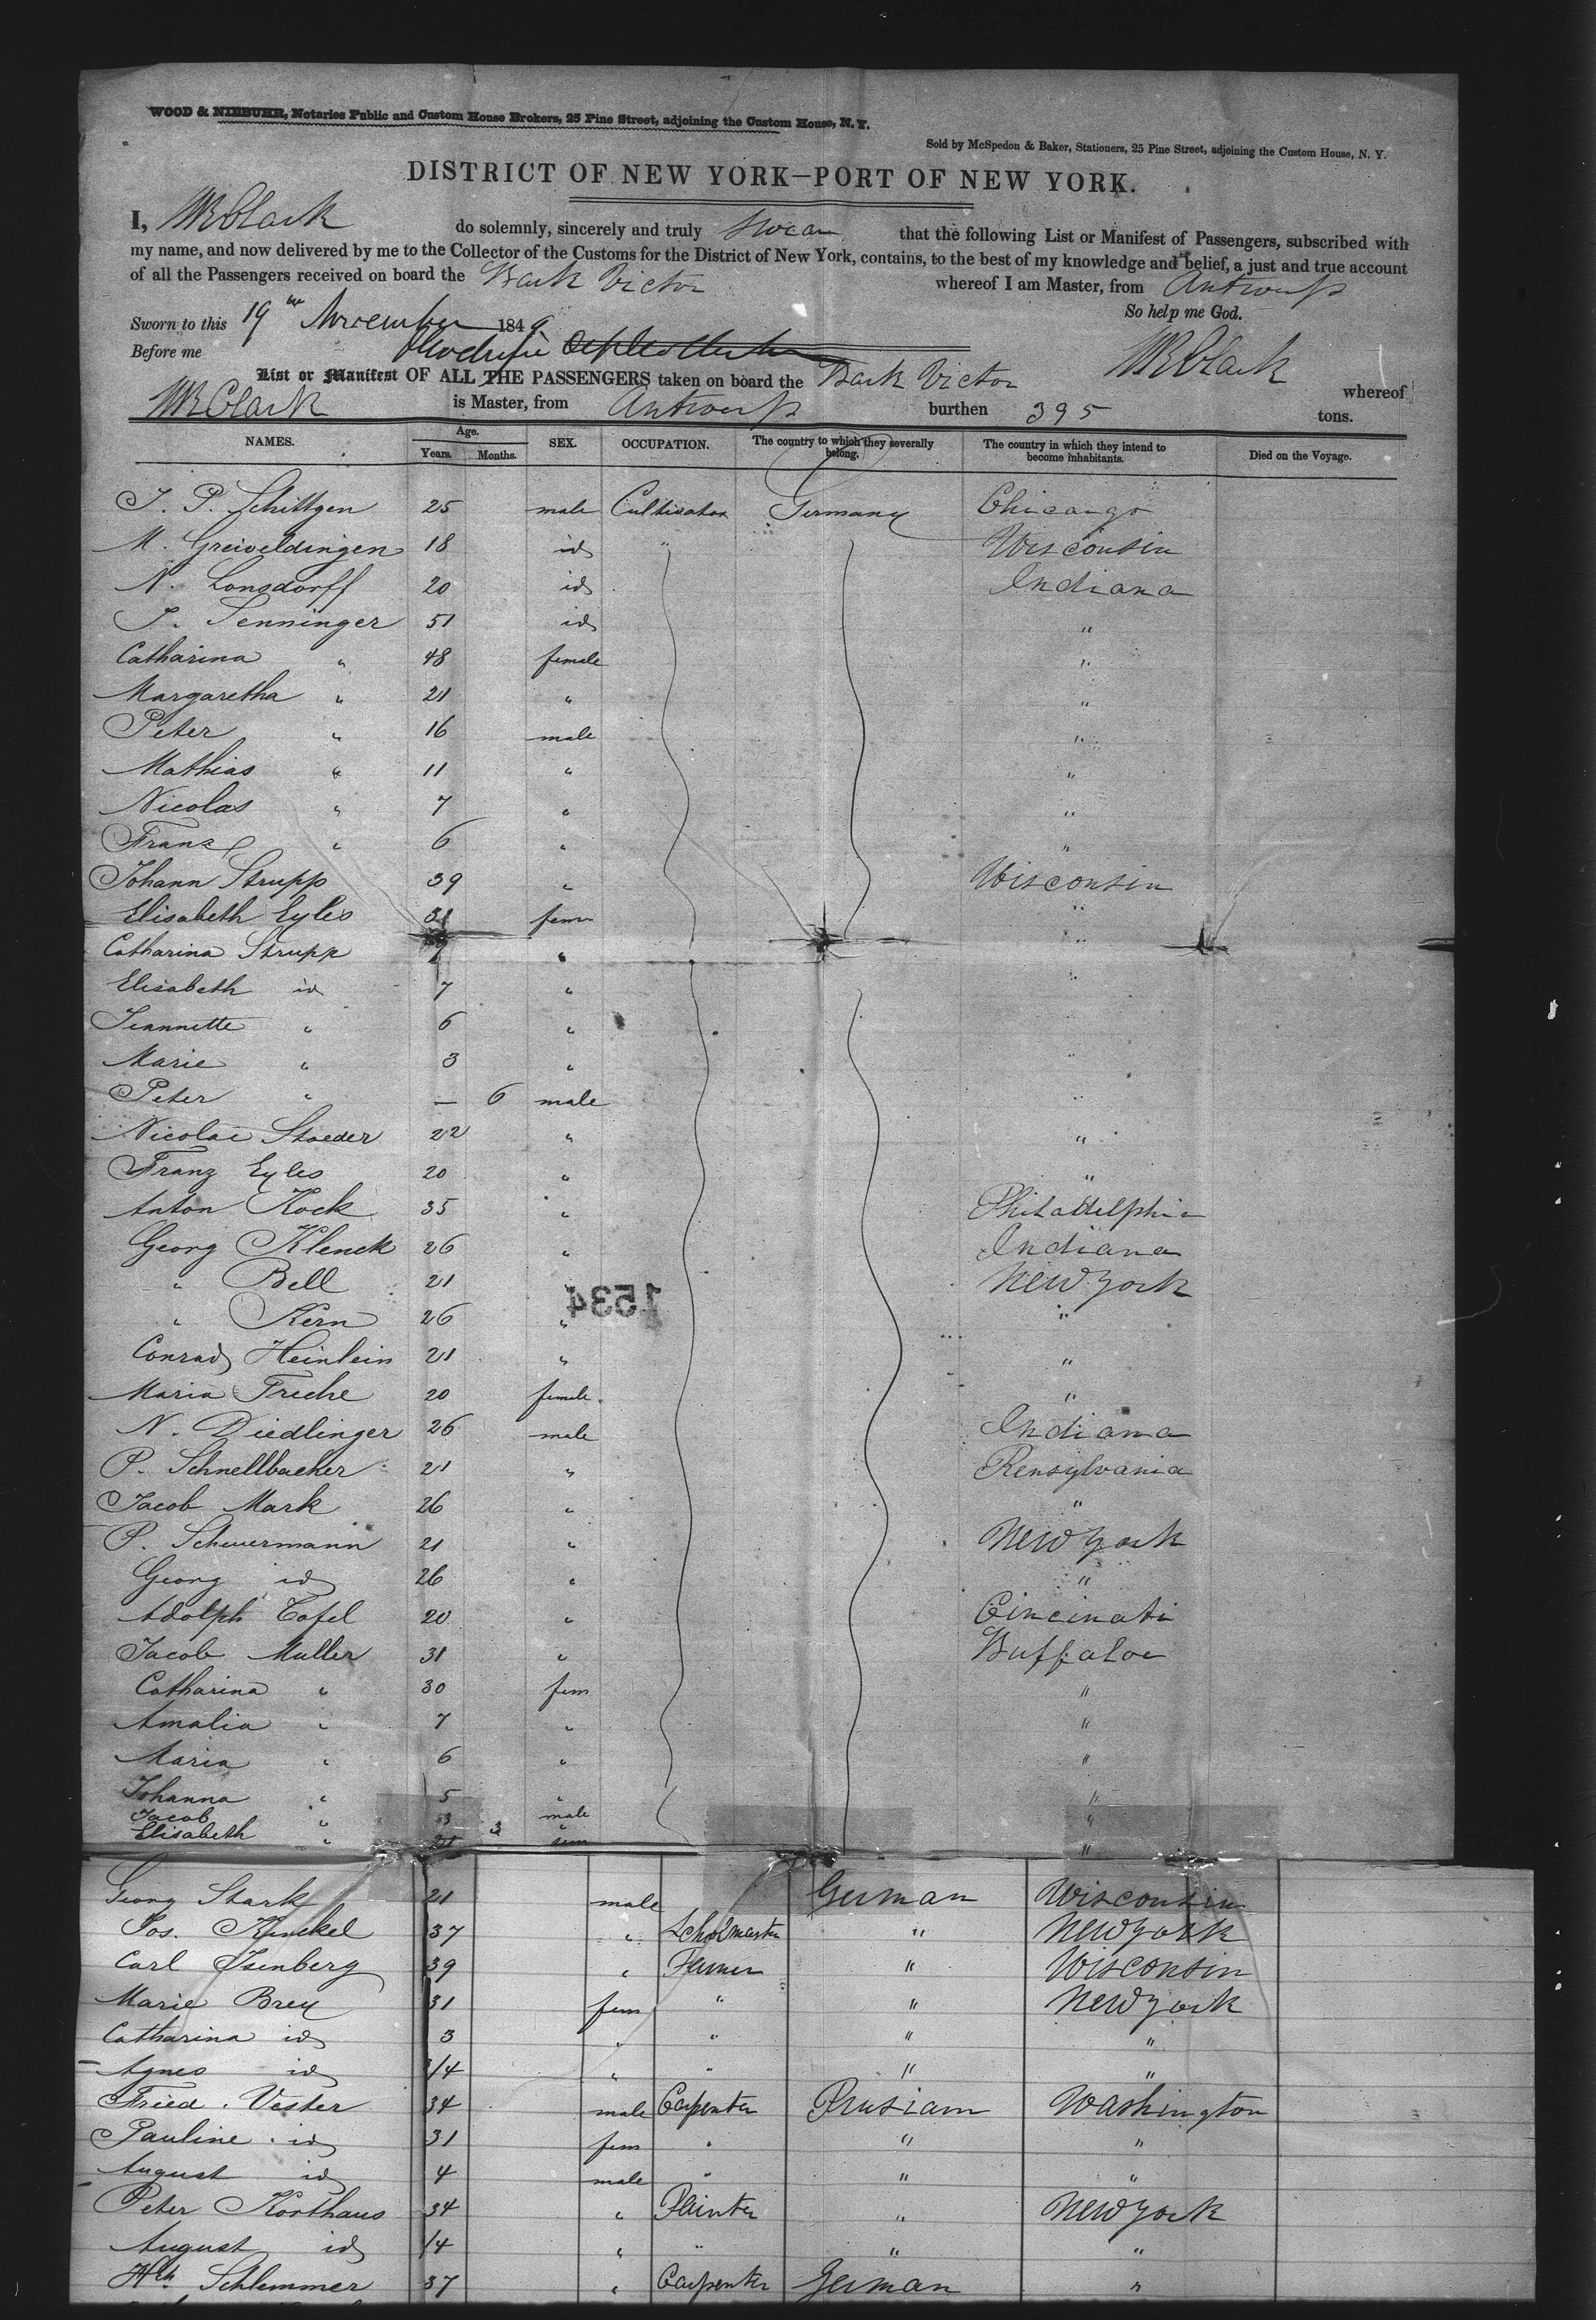 WOOD & NIEBUHR, Notaries Public and Custom House Brokers, 25 Pine Street, adjoining the Custom House, N. Y.
Sold by McSpedon & Baker, Stationers, 25 Pine Street, adjoining the Custom House, N. Y.
DISTRICT OF NEW YORK—PORT OF NEW YORK.
I, WR Clark do solemnly, sincerely and truly swear that the following List or Manifest of Passengers, subscribed with
my name, and now delivered by me to the Collector of the Customs for the District of New York, contains, to the best of my knowledge and belief, a just and true account
of all the Passengers received on board the Bark Victor whereof I am Master, from Antwerp
Sworn to this 19 November 1849 So help me God.
Before me WR Clark
List or Manifest OF ALL THE PASSENGERS taken on board the Bark Victor whereof
WR Clark is Master, from Antwerp burthen 395 tons.
NAMES. Age. Years. Months. SEX. OCCUPATION. The country to which they severally belong. The country in which they intend to become inhabitants. Died on the Voyage.
J. P. Schittgen 25 male Cultivator Germany Chicargo
M. Greiveldingen 18 id " Wisconsin
N. Lonsdorff 20 id Indiana
J. Senninger 51 id "
Catharina " 48 female "
Margaretha " 21 " "
Peter " 16 male "
Mathias " 11 " "
Nicolas " 7 " "
Franz " 6 " "
Johann Strupp 39 " Wisconsin
Elisabeth Eyles 31 fem "
Catharina Strupp " "
Elisabeth id 7 " "
Jeannette " 6 "
Marie " 3 " "
Peter " — 6 male "
Nicolai Stoeder 22 " "
Franz Eyles 20 " "
Anton Kock 35 " Philadelphia
Georg Klenck 26 " Indiana
" Bell 21 " New York
" Kern 26 " "
1534
Conrad Heinlein 21 " "
Maria Freche 20 female "
N. Diedlinger 26 male Indiana
P. Schnellbacher 21 " Pensylvania
Jacob Mark 26 " "
P. Scheuermann 21 " New York
Georg id 26 " "
Adolph Tafel 20 " Cincinati
Jacob Muller 31 " Buffaloe
Catharina " 30 fem "
Amalia " 7 " "
Maria " 6 " "
Johanna " 5 " "
Jacob " 3 male "
Elisabeth " 3 fem "
Georg Stark 21 male German Wisconsin
Jos. Kunckel 37 " Scholmaster " New York
Carl Isenberg 39 " Farmer " Wisconsin
Marie Brey 31 fem " " New York
Catharina id 3 " " " "
Agnes id 3/4 " " " "
Fried. Vester 34 male Carpenter Prusiam Washington
Pauline id 31 fem " " "
August id 4 male " " "
Peter Korthaus 34 " Painter " New York
August id 14 " " " "
Hch. Schlemmer 37 " Carpenter German "